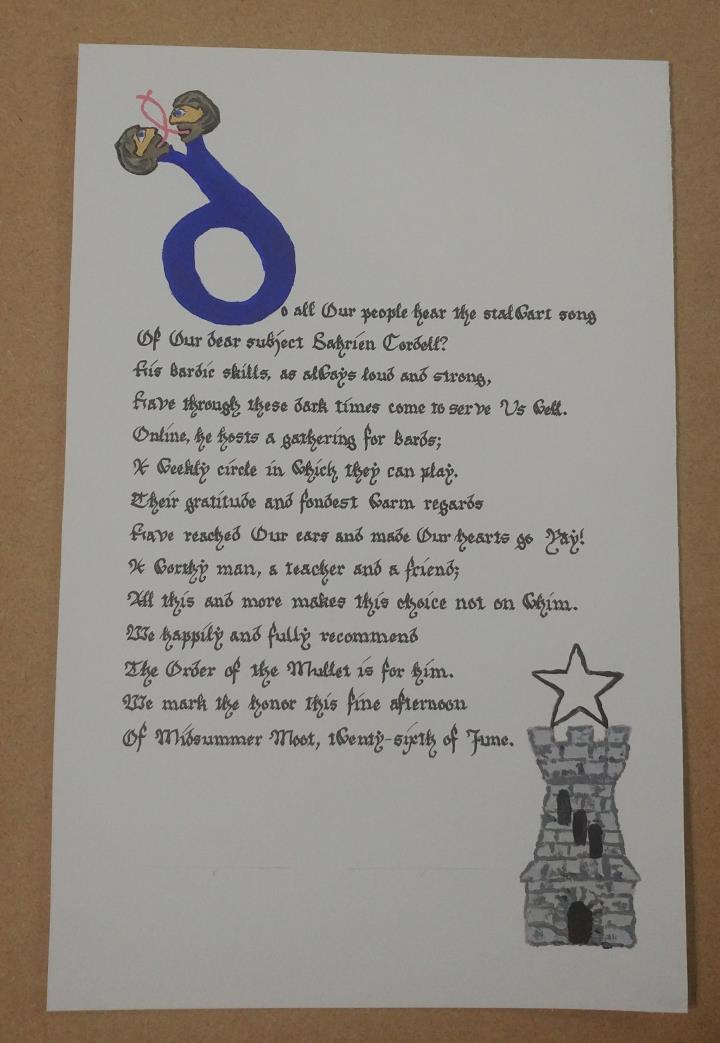 Do all Our people hear the stalwart song
Of Our dear subject Sahrien Cordell?
His bardic skills, as always loud and strong,
Have through these dark times come to serve Us well.
Online, he hosts a gathering for bards;
A weekly circle in which they can play.
Their gratitude and fondest warm regards
Have reached Our ears and made Our hearts go Yay!
A worthy man, a teacher and a friend;
All this and more makes this choice not on whim.
We happily and fully recommend
The Order of the Mullet is for him.
We mark the honor this fine afternoon
Of Midsummer Moot, twenty-sixth of June.